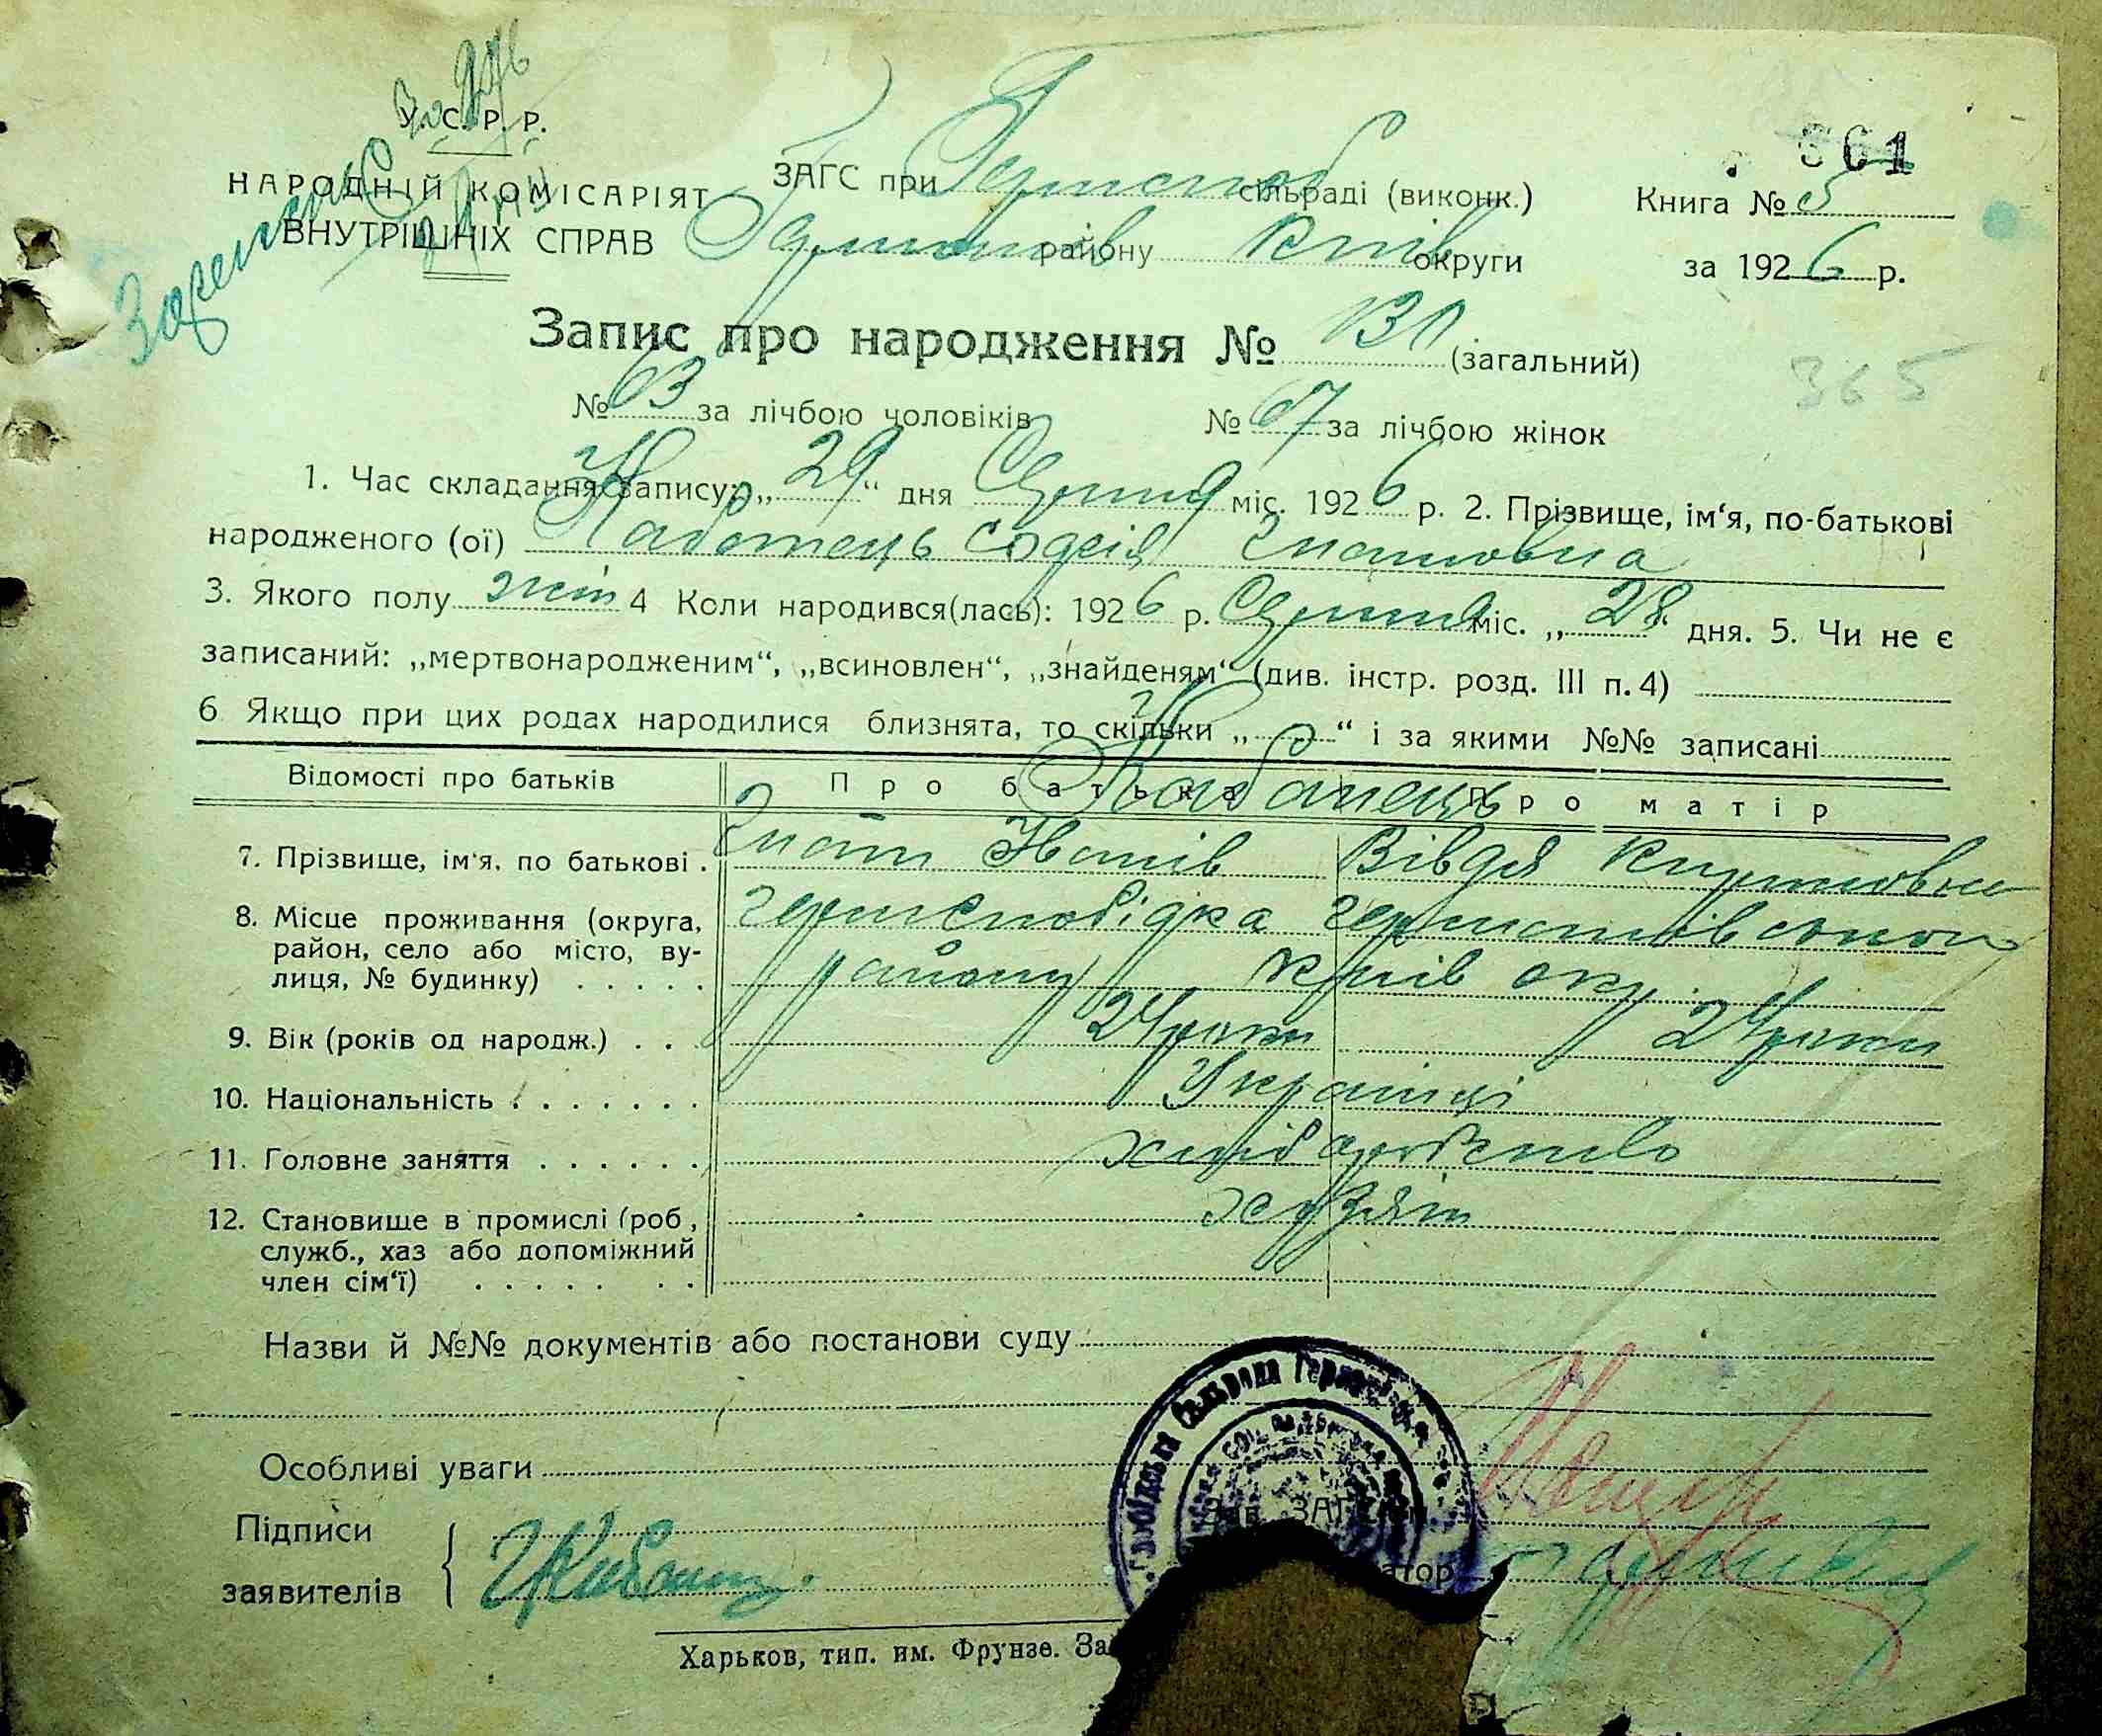 У. С. Р. Р.
НАРОДНІЙ КОМІСАРІЯТ
ВНУТРІШНІХ СПРАВ
ЗАГС при сільраді (виконк.)
району Київ округи
361
Книга № 5
за 1926 р.
Запис про народження № 130 (загальний)
365
№ 63 за лічбою чоловіків № 67 за лічбою жінок
1. Час складання запису: „29“ дня Серпня міс. 1926 р. 2. Прізвище, ім‘я, по-батькові
народженого (ої) Кабанець Софія Гнатовна
3. Якого полу жін 4 Коли народився(лась): 1926 р. Серпня міс. „28“ дня. 5. Чи не є
записаний: „мертвонародженим“, „всиновлен“, „знайденям“ (див. інстр. розд. III п. 4)
6 Якщо при цих родах народилися близнята, то скільки „ “ і за якими №№ записані
Відомості про батьків Про батька Про матір
Кабанець
7. Прізвище, ім‘я, по батькові . Гнат Іванів Вівдя
8. Місце проживання (округа,
район, село або місто, ву-
лиця, № будинку) . . . . . району Київ окр.
9. Вік (років од народж.) . . . 24 роки 24 роки
10. Національність . . . . . . . Українці
11. Головне заняття . . . . . . . хліборобство
12. Становище в промислі (роб,
служб., хаз або допоміжний
член сім‘ї) . . . . . . . хузяїн
Назви й №№ документів або постанови суду
Особливі уваги
Підписи
заявителів
Зав. ЗАГСом
атор
Харьков, тип. им. Фрунзе. За